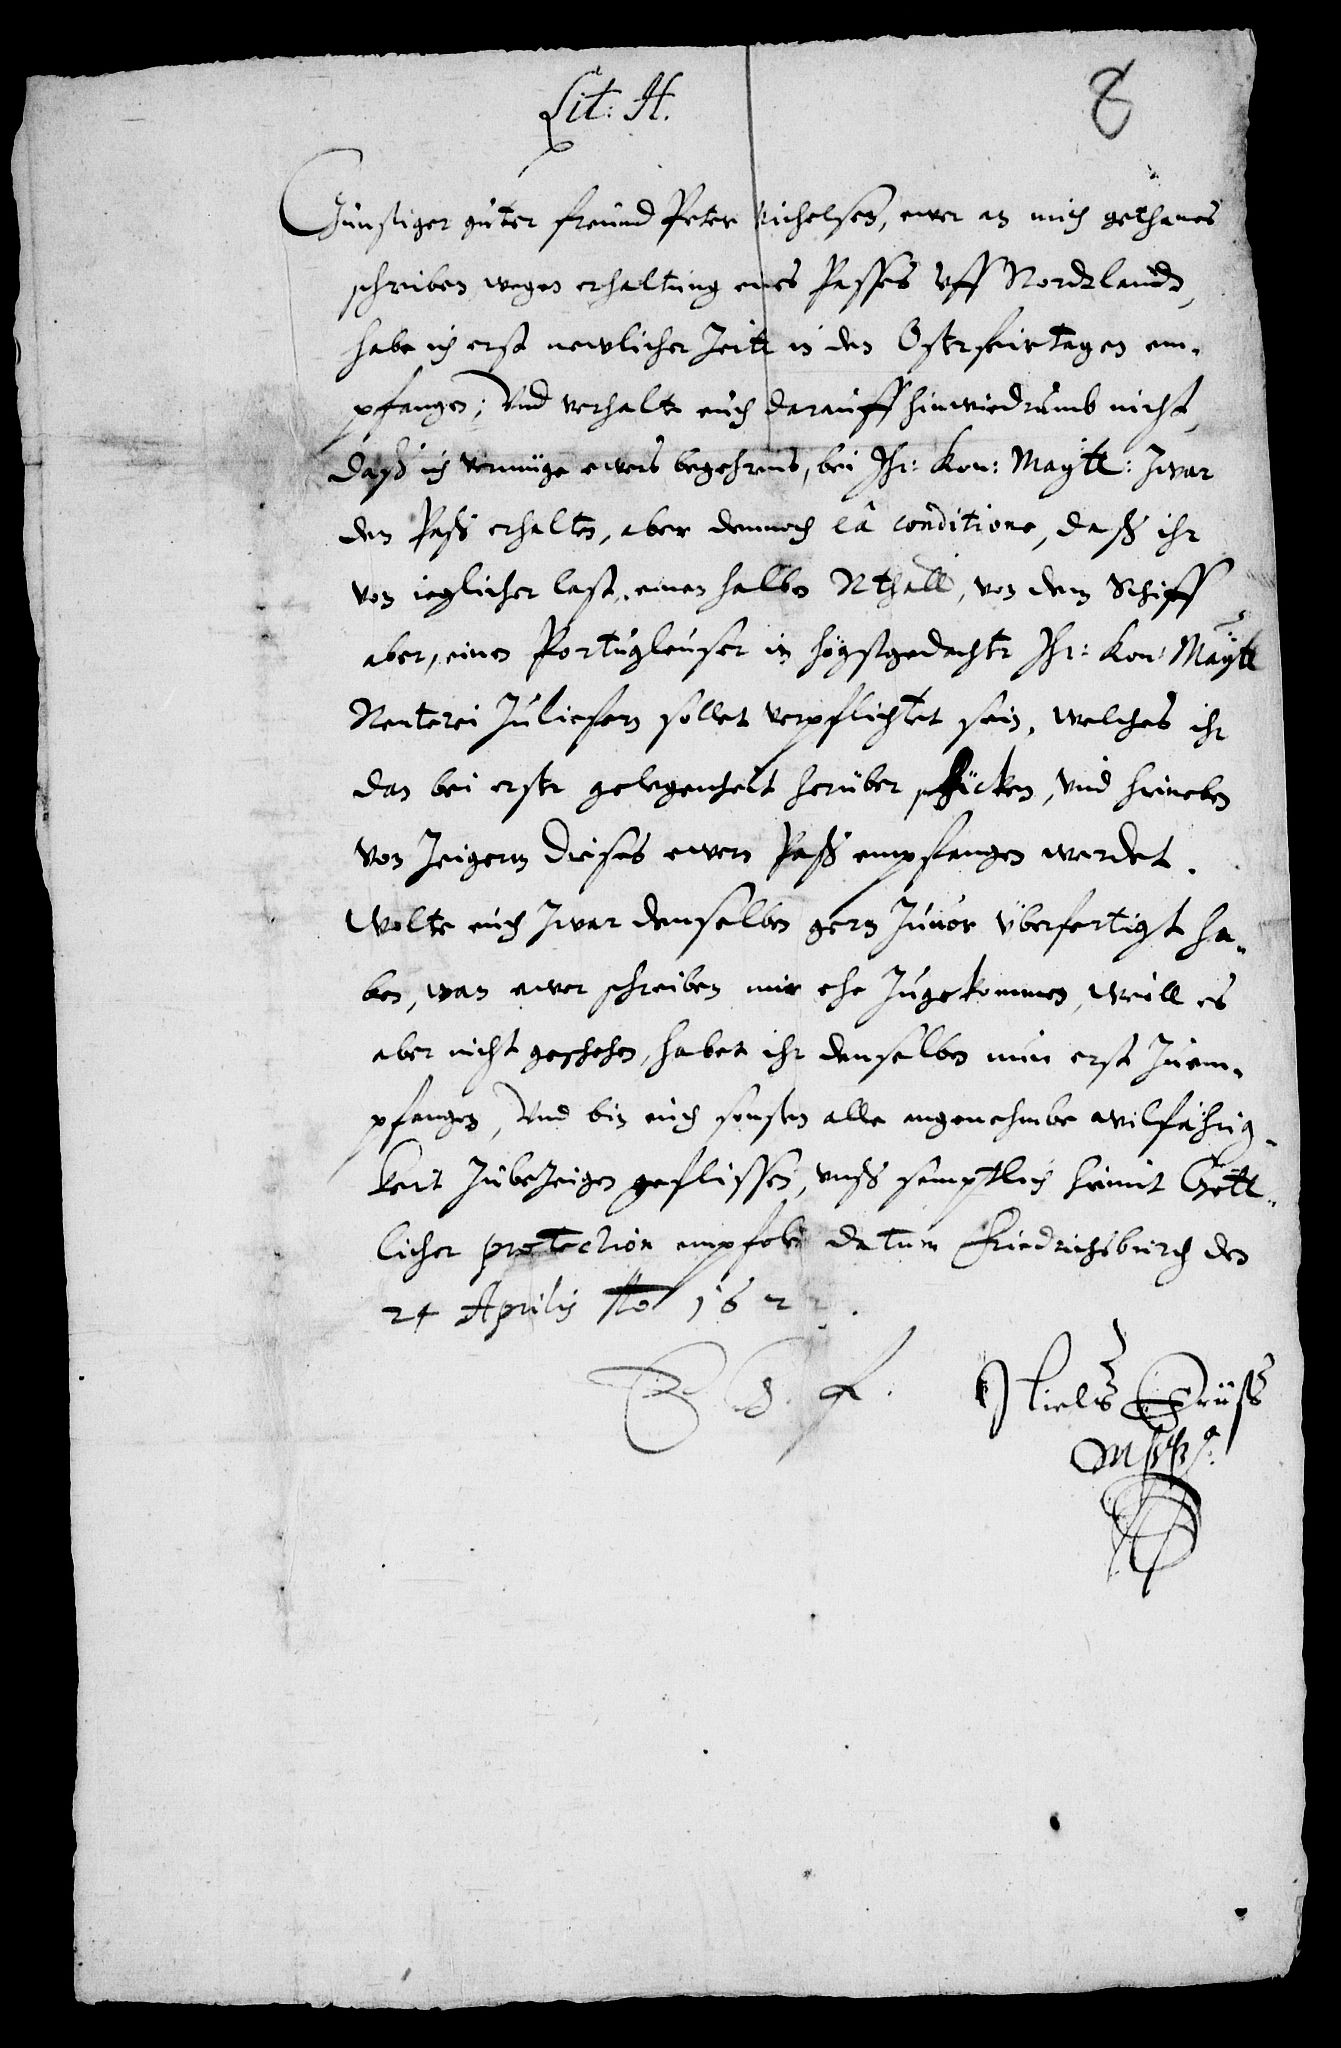 Lit: H.
8
Günstiger guter freund Peter Michelsen, ewer an mich gethanes
schreiben wegen erhaltung eines Passes uff Nordtlandt,
habe ich erst newlicher Zeitt in den Osterfeirtagen em-
pfangen; Und verhalte euch darauff hinwiedrumb nicht,
daß ich vermüge ewers begehrens, bei Ihr: Kon: Maÿtt: zwar
den Paß erhalten, aber dennoch eâ conditione, daß ihr
von ieglicher last, einen halben Rthall, von dem Schiff
aber, einen Portugleuser in högstgedachte Ihr: Kon: Maÿtt
Renterei zuliefern sollet verpflichtet sein, welches ihr
dan bei erster gelegenheit herüber schicken, und hineben
von Zeigern dieses ewern Paß empfangen werdet.
Wolte euch zwar denselben gern zuuor überfertigt ha-
ben, wan ewer schreiben mir ehe zugekommen, weill es
aber nicht geschehen, habet ihr denselben nun erst zuem-
pfangen, Und bin euch sonsten alle angenehmbe wilfährig-
keit zubezeigen geflissen, unß semptlich hiemit Gött-
licher protection empfolen datum Friedrichsburch den
24 Aprilis Ao 162
E G. F. Niels Crüß
Mppa.